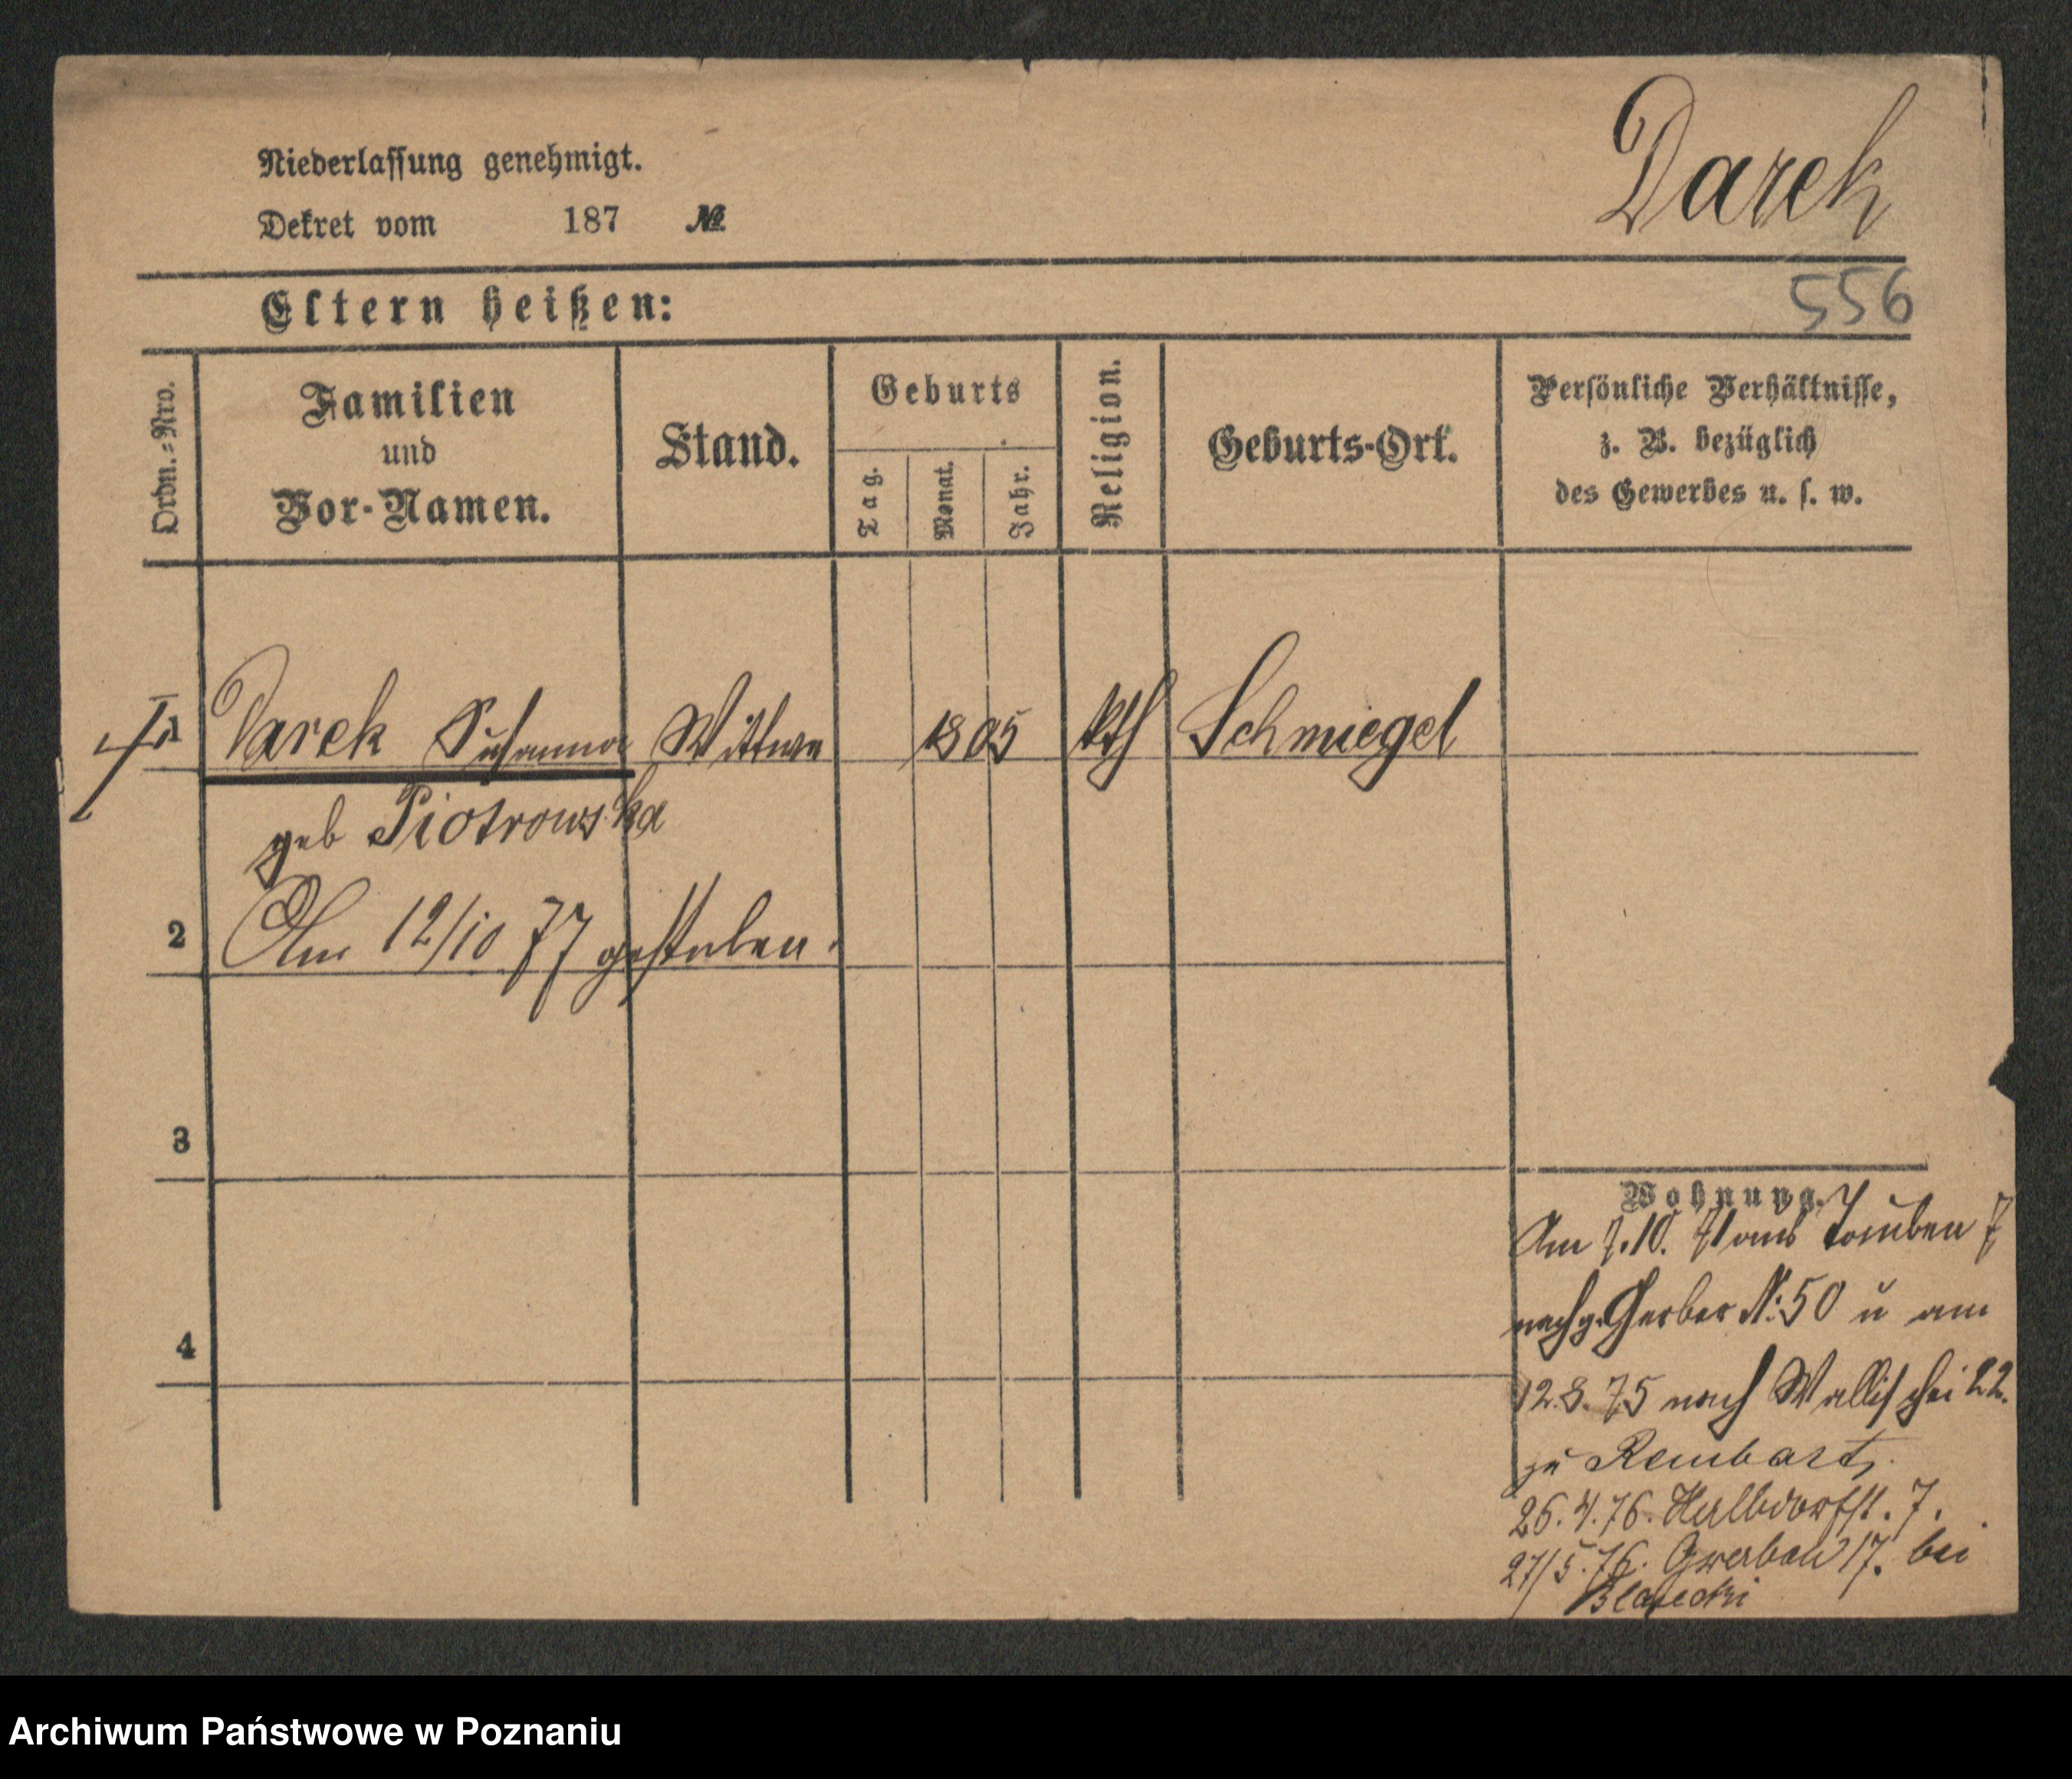 Darek
Niederlassung genehmigt.
Dekret vom 187 №
556
Eltern heißen:
Ordn.-Nro.
Familien
und
Vor-Namen.
Stand.
Geburts
Tag.
Monat.
Jahr.
Religion.
Geburts-Ort.
Persönliche Verhältnisse,
z. B. bezüglich
des Gewerbes u. s. w.
1 Darek Susanna Wittwe 1805 kth Schmiegel
geb Piotrowska
2 Am 12/10 77 gestorben.
3
4
Wohnung.
Am 7.10. 71 aus Tauben 7
nach gr. Gerber N: 50 u am
12.8.75 nach Wallischei 22.
zu Rembart.
26.4.76. Halbdorfst. 7.
27/5.76. Gerbau 17. bei